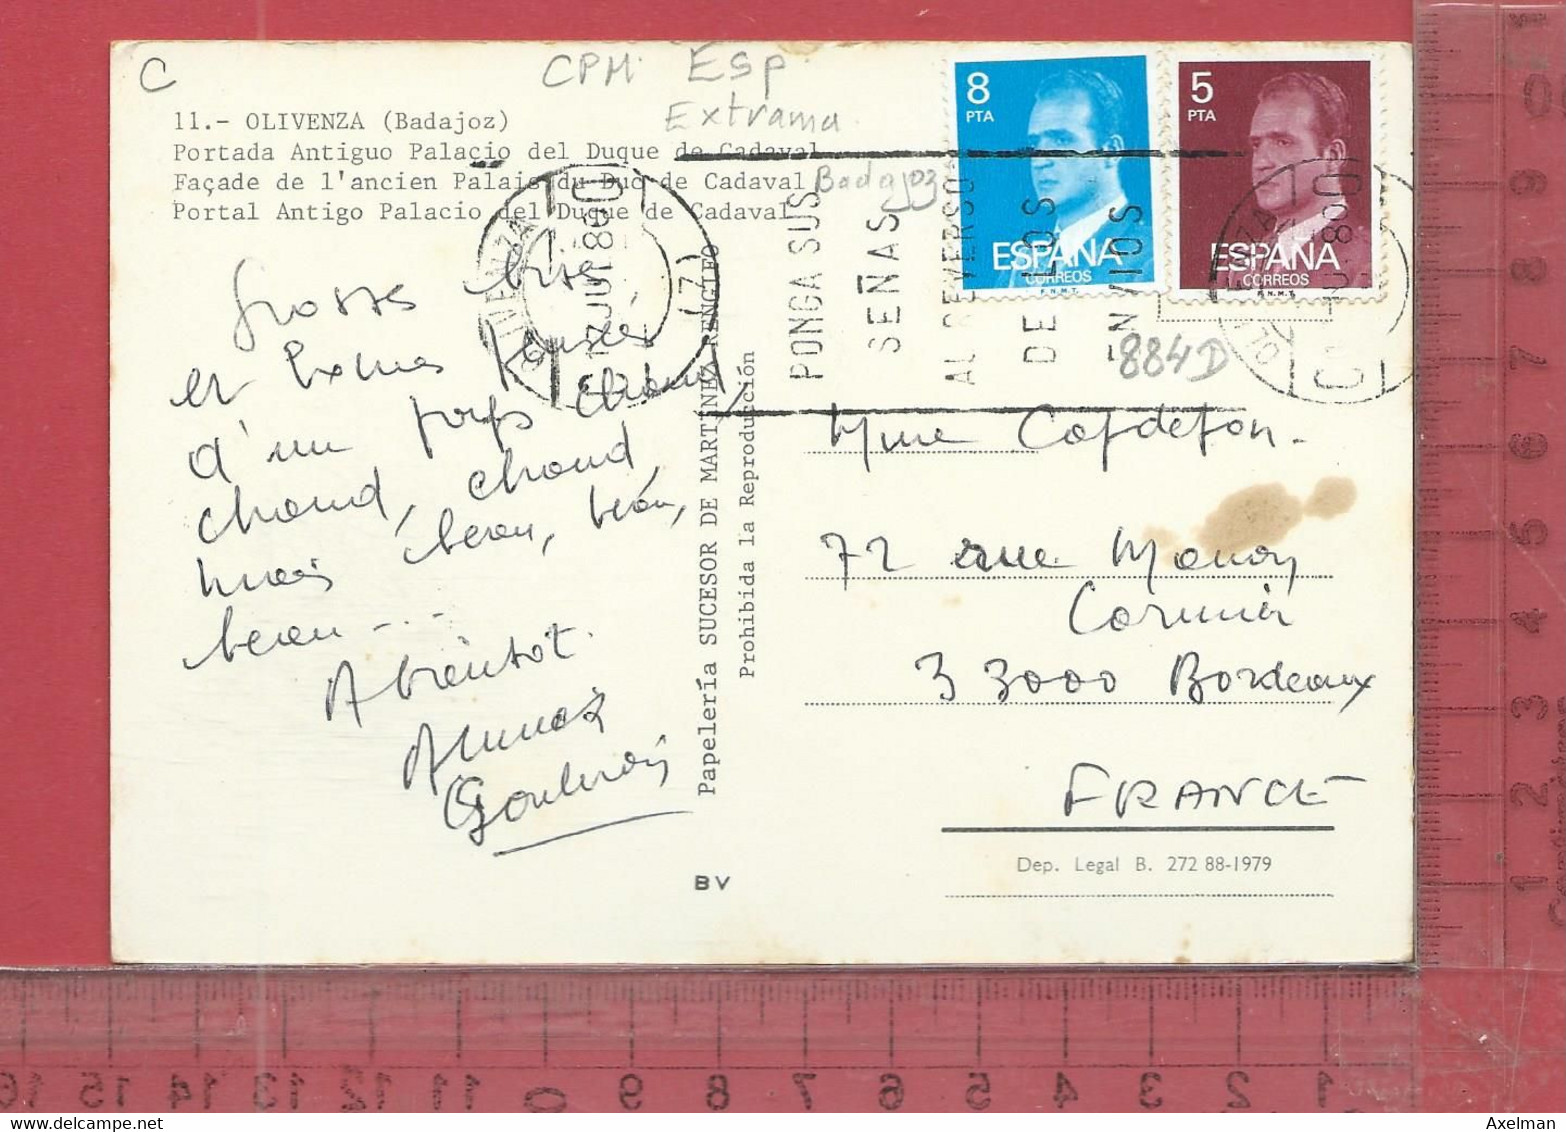 C
CPM Esp
Extrama
Badajoz
11.- OLIVENZA (Badajoz)
Portada Antiguo Palacio del Duque de Cadaval
Façade de l'ancien Palais du Duc de Cadaval
Portal Antigo Palacio del Duque de Cadaval
8
PTA
ESPAÑA
CORREOS
F.N.M.T.
5
PTA
ESPAÑA
CORREOS
F.N.M.T.
PONGA SUS
SEÑAS
AL REVERSO
DE LOS
ENVIOS
884D
Grosses bises
et bonnes pensées
d'un pays chaud
chaud, chaud,
mais beau, beau,
beau - ...
A bientôt.
Papelería SUCESOR DE MARTINEZ RENGIFO
Prohibida la Reproducción
BV
Mme
72 rue
33000 Bordeaux
FRANCE
Dep. Legal B. 272 88-1979
1 2 3 4 5 6 7 8 9
16 15 14 13 12 11 0 9 8 7 6 5 4 3 2 1
Axelman